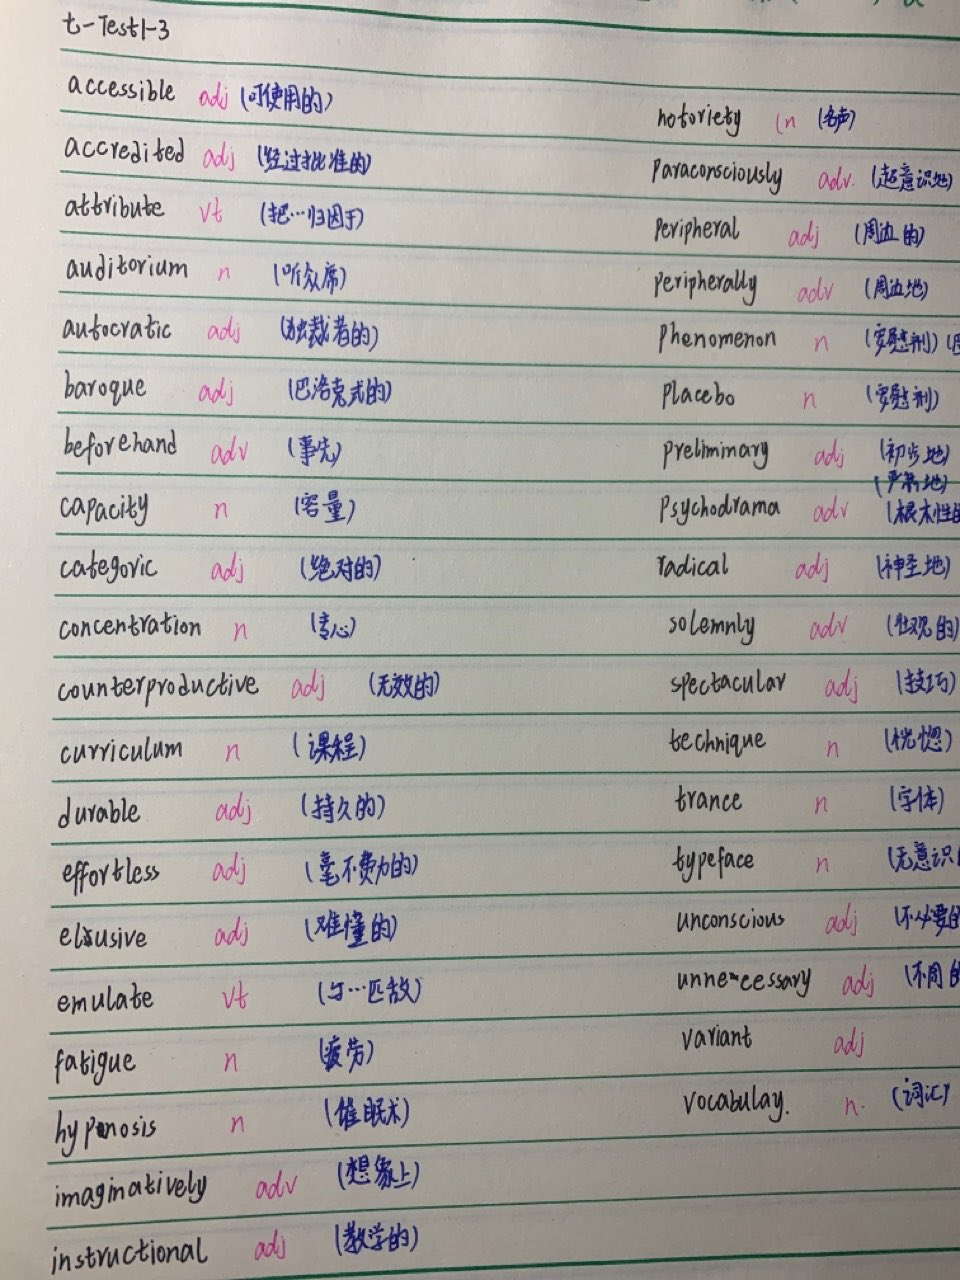 t-Test1-3
accessible adj (可使用的)
accredited adj (经过批准的)
attribute vt (把…归因于)
auditorium n (听众席)
autocratic adj (独裁者的)
baroque adj (巴洛克式的)
beforehand adv (事先)
capacity n (容量)
categoric adj (绝对的)
concentration n (专心)
counterproductive adj (无效的)
curriculum n (课程)
durable adj (持久的)
effortless adj (毫不费力的)
elusive adj (难懂的)
emulate vt (与…匹敌)
fatigue n (疲劳)
hypnosis n (催眠术)
imaginatively adv (想象上)
instructional adj (教学的)
notoriety (n (名声)
paraconsciously adv. (超意识地)
peripheral adj (周边的)
peripherally adv (周边地)
phenomenon n (安慰剂)
placebo n (安慰剂)
preliminary adj (初步地)
(严肃地)
psychodrama adv (根本性的
radical adj (神圣地)
solemnly adv (壮观的)
spectacular adj (技巧)
technique n (恍惚)
trance n (字体)
typeface n (无意识
unconscious adj (不必要的
unnecessary adj (不同的
variant adj
vocabulay. n. (词汇)